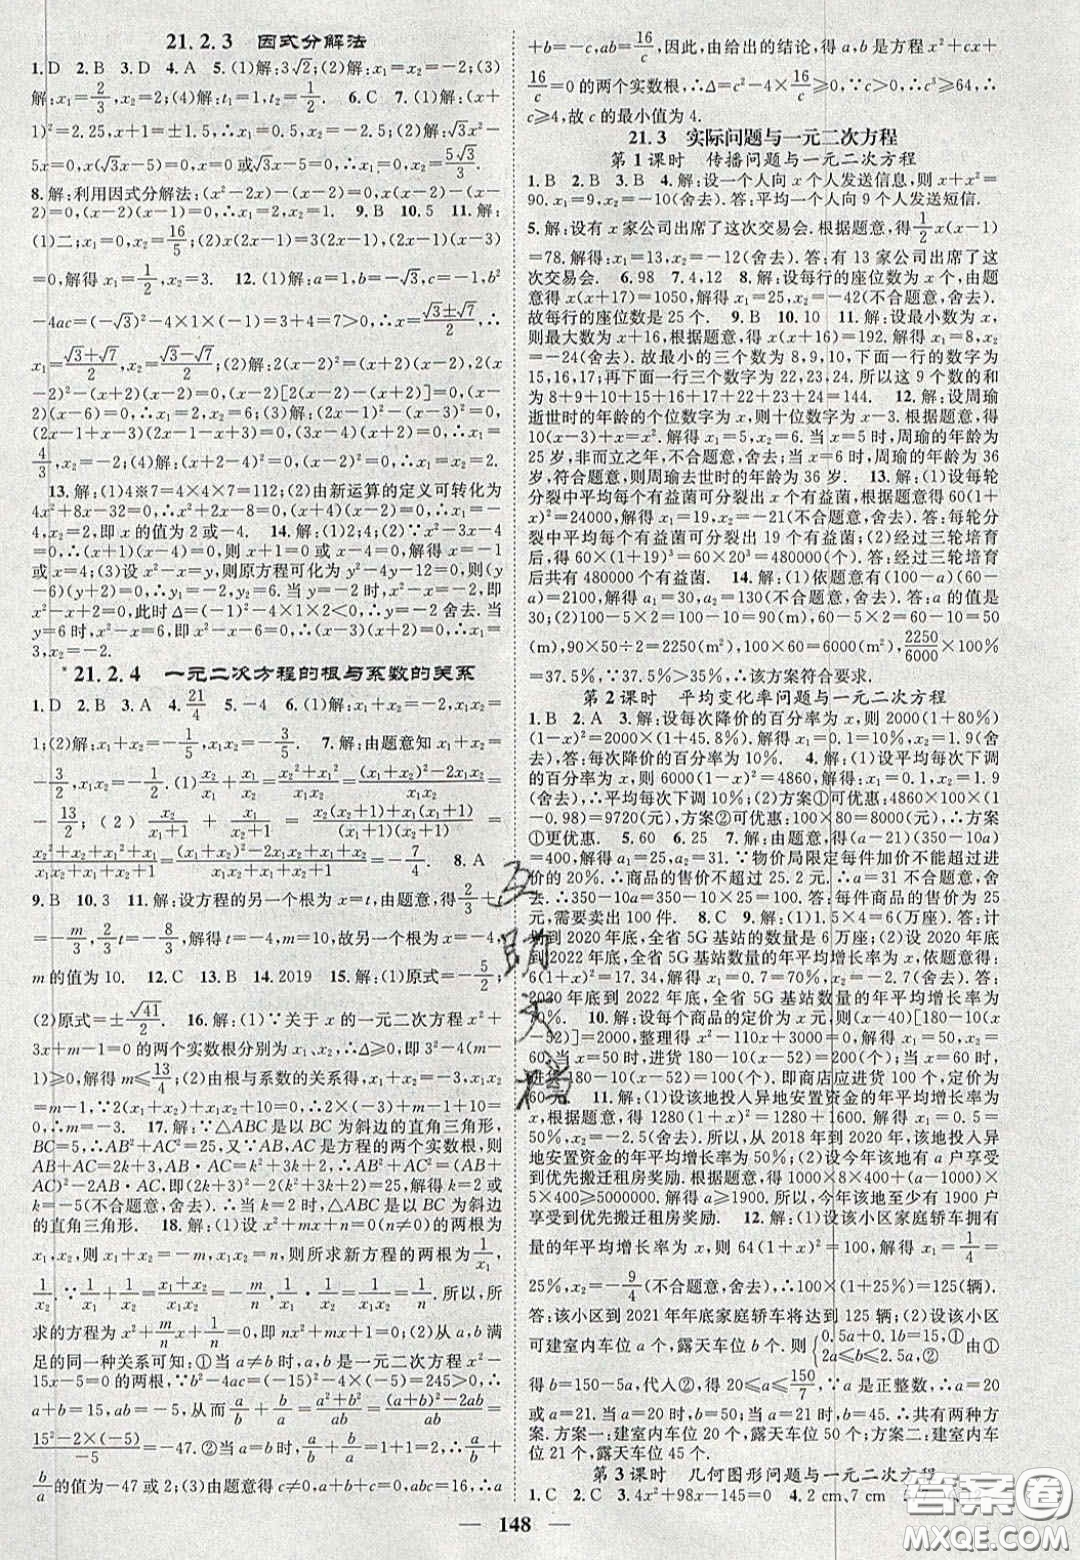 21.2.3 因式分解法
1.D 2.B 3.D 4.A 5.(1)解:3√2;(2)解:x₁=x₂=-2;(3)
解:x₁=2/3,x₂=2;(4)解:t₁=1,t₂=1/2. 6.C 7.(1)解:(x+
1)²=2.25,x+1=±1.5,∴x₁=0.5,x₂=-2.5;(2)解:√3x²-
5x=0,x(√3x-5)=0,x=0或√3x-5=0,∴x₁=0,x₂=5√3/3.
8.解:利用因式分解法:(x²-2x)-(x-2)=0,x(x-2)-(x-2)
=0,(x-2)(x-1)=0,∴x₁=2,x₂=1. 9.B 10.5 11.解:
(1)二;x₁=0,x₂=16/5;(2)x(2x-1)=3(2x-1),(2x-1)(x-3)
=0,解得x₁=1/2,x₂=3. 12.(1)解:a=1,b=-√3,c=-1,b²
-4ac=(-√3)²-4×1×(-1)=3+4=7>0,∴x=(√3±√7)/2,∴
x₁=(√3+√7)/2,x₂=(√3-√7)/2;(2)解:2(x-2)²=(x+2)(x-2),2(x
-2)²-(x+2)(x-2)=0,(x-2)[2(x-2)-(x+2)]=0,(x-2)
(x-6)=0,∴x₁=2,x₂=6;(3)解:(2x-1)²-(x-3)²=0,
(2x-1+x-3)(2x-1-x+3)=0,(3x-4)(x+2)=0,∴x₁=
4/3,x₂=-2;(4)解:(x+2-4)²=0,(x-2)²=0,∴x₁=x₂=2.
13.解:(1)4※7=4×4×7=112;(2)由新运算的定义可转化为
4x²+8x-32=0,∴x²+2x-8=0,(x+4)(x-2)=0,∴x₁=
-4,x₂=2,即x的值为2或-4. 14.解:(1)2;4;(2)∵x²-3x-4
=0,∴(x+1)(x-4)=0,则x+1=0或x-4=0,解得x=-1
或x=4;(3)设x²-x=y,则原方程可化为y²-4y-12=0,则(y
-6)(y+2)=0,∴y₁=-2,y₂=6.当y=-2时,x²-x=-2,即
x²-x+2=0,此时Δ=(-1)²-4×1×2<0,∴y=-2舍去.当
y=6时,x²-x=6,即x²-x-6=0,∴(x-3)(x+2)=0,∴x₁=
3,x₂=-2.
*21.2.4 一元二次方程的根与系数的关系
1.D 2.B 3.A 4.21/4 5.-4 6.(1)解:x₁+x₂=-2,x₁x₂=
1;(2)解:x₁+x₂=-1/5,x₁x₂=-3/5. 7.解:由题意知x₁+x₂=
-3/2,x₁x₂=-1/2.(1)x₂/x₁+x₁/x₂=(x₂²+x₁²)/x₁x₂=((x₁+x₂)²-2x₁x₂)/x₁x₂=
-13/2;(2)x₂/(x₁+1)+x₁/(x₂+1)=(x₂(x₂+1)+x₁(x₁+1))/((x₁+1)(x₂+1))=
(x₂²+x₂+x₁²+x₁)/(x₁x₂+x₁+x₂+1)=((x₁+x₂)²-2x₁x₂+x₁+x₂)/(x₁x₂+x₁+x₂+1)=-7/4. 8.A
9.B 10.3 11.解:设方程的另一个根为x=t,由题意,得2/3+t
=-m/3,2/3t=-8/3,解得t=-4,m=10,故另一个根为x=-4,
m的值为10. 12.C 13.B 14.2019 15.解:(1)原式=-5/2;
(2)原式=±√41/2. 16.解:(1)∵关于x的一元二次方程x²+
3x+m-1=0的两个实数根分别为x₁、x₂,∴Δ≥0,即3²-4(m
-1)≥0,解得m≤13/4;(2)由根与系数的关系得,x₁+x₂=-3,x₁x₂
=m-1.∵2(x₁+x₂)+x₁x₂+10=0,∴2×(-3)+m-1+10=
0,∴m=-3. 17.解:∵△ABC是以BC为斜边的直角三角形,
BC=5,∴AB²+AC²=25,又∵AB、AC是方程的两个实数根,则
AB+AC=2k+3,AB·AC=k²+3k+2,∵AB²+AC²=(AB+
AC)²-2AB·AC,即(2k+3)²-2(k²+3k+2)=25,解得k=2或
k=-5(不合题意,舍去),∴当k=2时,△ABC是以BC为斜边
的直角三角形. 18.解:(1)设x²+mx+n=0(n≠0)的两根为
x₁,x₂,则x₁+x₂=-m,x₁x₂=n,则所求新方程的两根为1/x₁,
1/x₂.∵1/x₁+1/x₂=(x₁+x₂)/x₁x₂=-m/n,1/x₁·1/x₂=1/x₁x₂=1/n.所以,所
求的方程为x²+m/n x+1/n=0,即nx²+mx+1=0;(2)由a,b满
足的同一种关系可知:①当a≠b时,a,b是一元二次方程x²-
15x-5=0的两根,∵b²-4ac=(-15)²-4×(-5)=245>0,∴
a+b=15,ab=-5,从而a/b+b/a=(a²+b²)/ab=((a+b)²-2ab)/ab=
(15²-2×(-5))/-5=-47.②当a=b时,a/b+b/a=1+1=2,∴a/b+
b/a的值为-47或2;(3)由题意可得c≠0,a+b=-c,abc=16,∴a
+b=-c,ab=16/c,因此,由给出的结论,得a,b是方程x²+cx+
16/c=0的两个实数根,∴Δ=c²-4×16/c≥0,∵c>0,∴c³≥64,∴
c≥4,故c的最小值为4.
21.3 实际问题与一元二次方程
第1课时 传播问题与一元二次方程
1.B 2.C 3.B 4.解:设一个人向x个人发送信息,则x+x²=
90.x₁=9,x₂=-10(舍去).答:平均一个人向9个人发送短信.
5.解:设有x家公司出席了这次交易会.根据题意,得1/2x(x-1)
=78.解得:x₁=13,x₂=-12(舍去).答:有13家公司出席了这
次交易会. 6.98 7.4,12 8.解:设每行的座位数为x个,由题
意得x(x+17)=1050,解得x₁=25,x₂=-42(不合题意,舍去).
故每行的座位数是25个. 9.B 10.10 11.解:设最小数为x,
则最大数为x+16,根据题意,得x(x+16)=192.解得x₁=8,x₂
=-24(舍去).故最小的三个数为8,9,10,下面一行的数字为
15,16,17,再下面一行三个数字为22,23,24.所以这9个数的和
为8+9+10+15+16+17+22+23+24=144. 12.解:设周瑜
逝世时的年龄的个位数字为x,则十位数字为x-3.根据题意,得
10(x-3)+x=x².解得x₁=5,x₂=6.当x=5时,周瑜的年龄为25
岁,非而立之年,不合题意,舍去;当x=6时,周瑜的年龄为36
岁,符合题意,则周瑜去世时的年龄为36岁. 13.解:(1)设每轮
分裂中平均每个有益菌可分裂出x个有益菌,根据题意,得60(1
+x)²=24000,解得x₁=19,x₂=-21(不合题意,舍去).答:每轮分
裂中平均每个有益菌可分裂出19个有益菌;(2)经过三轮培育
后,得60×(1+19)³=60×20³=480000(个).答:经过三轮培育
后共有480000个有益菌. 14.解:(1)依题意有(100-a)(60-
a)=2100,解得a₁=30,a₂=130(不合题意,舍去).答:a的值是
30;(2)100-5×2=100-10=90(m),60-5×2=60-10=50
(m),90×50=4500(m²),60×100-4500-150=2250/6000×100%
=37.5%,∵37.5%>35%,∴该方案符合要求.
第2课时 平均变化率问题与一元二次方程
1.B 2.A 3.解:设每次降价的百分率为x,则2000(1+80%)
(1-x)²=2000(1+45.8%),解得:x₁=0.1=10%,x₂=1.9(舍
去).答:每次降价的百分率为10%. 4.解:(1)设平均每次下调
的百分率为x,则6000(1-x)²=4860,解得:x₁=0.1,x₂=1.9
(舍去),∴平均每次下调10%;(2)方案①可优惠:4860×100×
(1-0.98)=9720(元),方案②可优惠:100×80=8000(元),∴方案
①更优惠. 5.60 6.25 7.解:由题意,得(a-21)(350-10a)
=400,解得a₁=25,a₂=31.∵物价局限定每件加价不能超过进
价的20%,∴商品的售价不超过25.2元,∴a=31不合题意,舍
去.∴350-10a=350-10×25=100(件).答:该商品的售价为25
元,需要卖出100件. 8.C 9.解:(1)1.5×4=6(万座).答:计
划到2020年底,全省5G基站的数量是6万座;(2)设2020年底
到2022年底,全省5G基站数量的年平均增长率为x,依题意得:
6(1+x)²=17.34,解得:x₁=0.7=70%,x₂=-2.7(舍去).答:
2020年底到2022年底,全省5G基站数量的年平均增长率为
70%. 10.解:设每个商品的定价为x元,则(x-40)[180-10(x
-52)]=2000,整理得x²-110x+3000=0,解得x₁=50,x₂=60.
当x=50时,进货180-10(x-52)=200(舍去);当x=60时,
进货180-10(x-52)=100(个).即商店应进货100个,定价为60
元. 11.解:(1)设该地投入异地安置资金的年平均增长率为
x,根据题意,得1280(1+x)²=1280+1600,解得x₁=0.5=
50%,x₂=-2.5(舍去).所以,从2018年到2020年,该地投入异
地安置资金的年平均增长率为50%;(2)设今年该地有a户享受
到优先搬迁租房奖励.根据题意,得1000×8×400+(a-1000)
×5×400≥5000000.解得a≥1900.所以,今年该地至少有1900户
享受到优先搬迁租房奖励. 12.解:(1)设该小区家庭轿车拥有
量的年平均增长率为x,则64(1+x)²=100.解得x₁=1/4=
25%,x₂=-9/4(不合题意,舍去),∴100×(1+25%)=125(辆).
答:该小区到2021年年底家庭轿车将达到125辆;(2)设该小区
可建室内车位a个,露天车位b个.则{0.5a+0.1b=15,①2a≤b≤2.5a,②由①
得b=150-5a,代入②,得20≤a≤150/7,∵a是正整数,∴a=20
或21.当a=20时,b=50;当a=21时,b=45.∴共有两种方
案.方案一:建室内车位20个,露天车位50个;方案二:建室内车
位21个,露天车位45个.
第3课时 几何图形问题与一元二次方程
1.C 2.C 3.4x²+98x-145=0 4.2 cm,7 cm
148
互助文档
答案圈
MXQE.COM